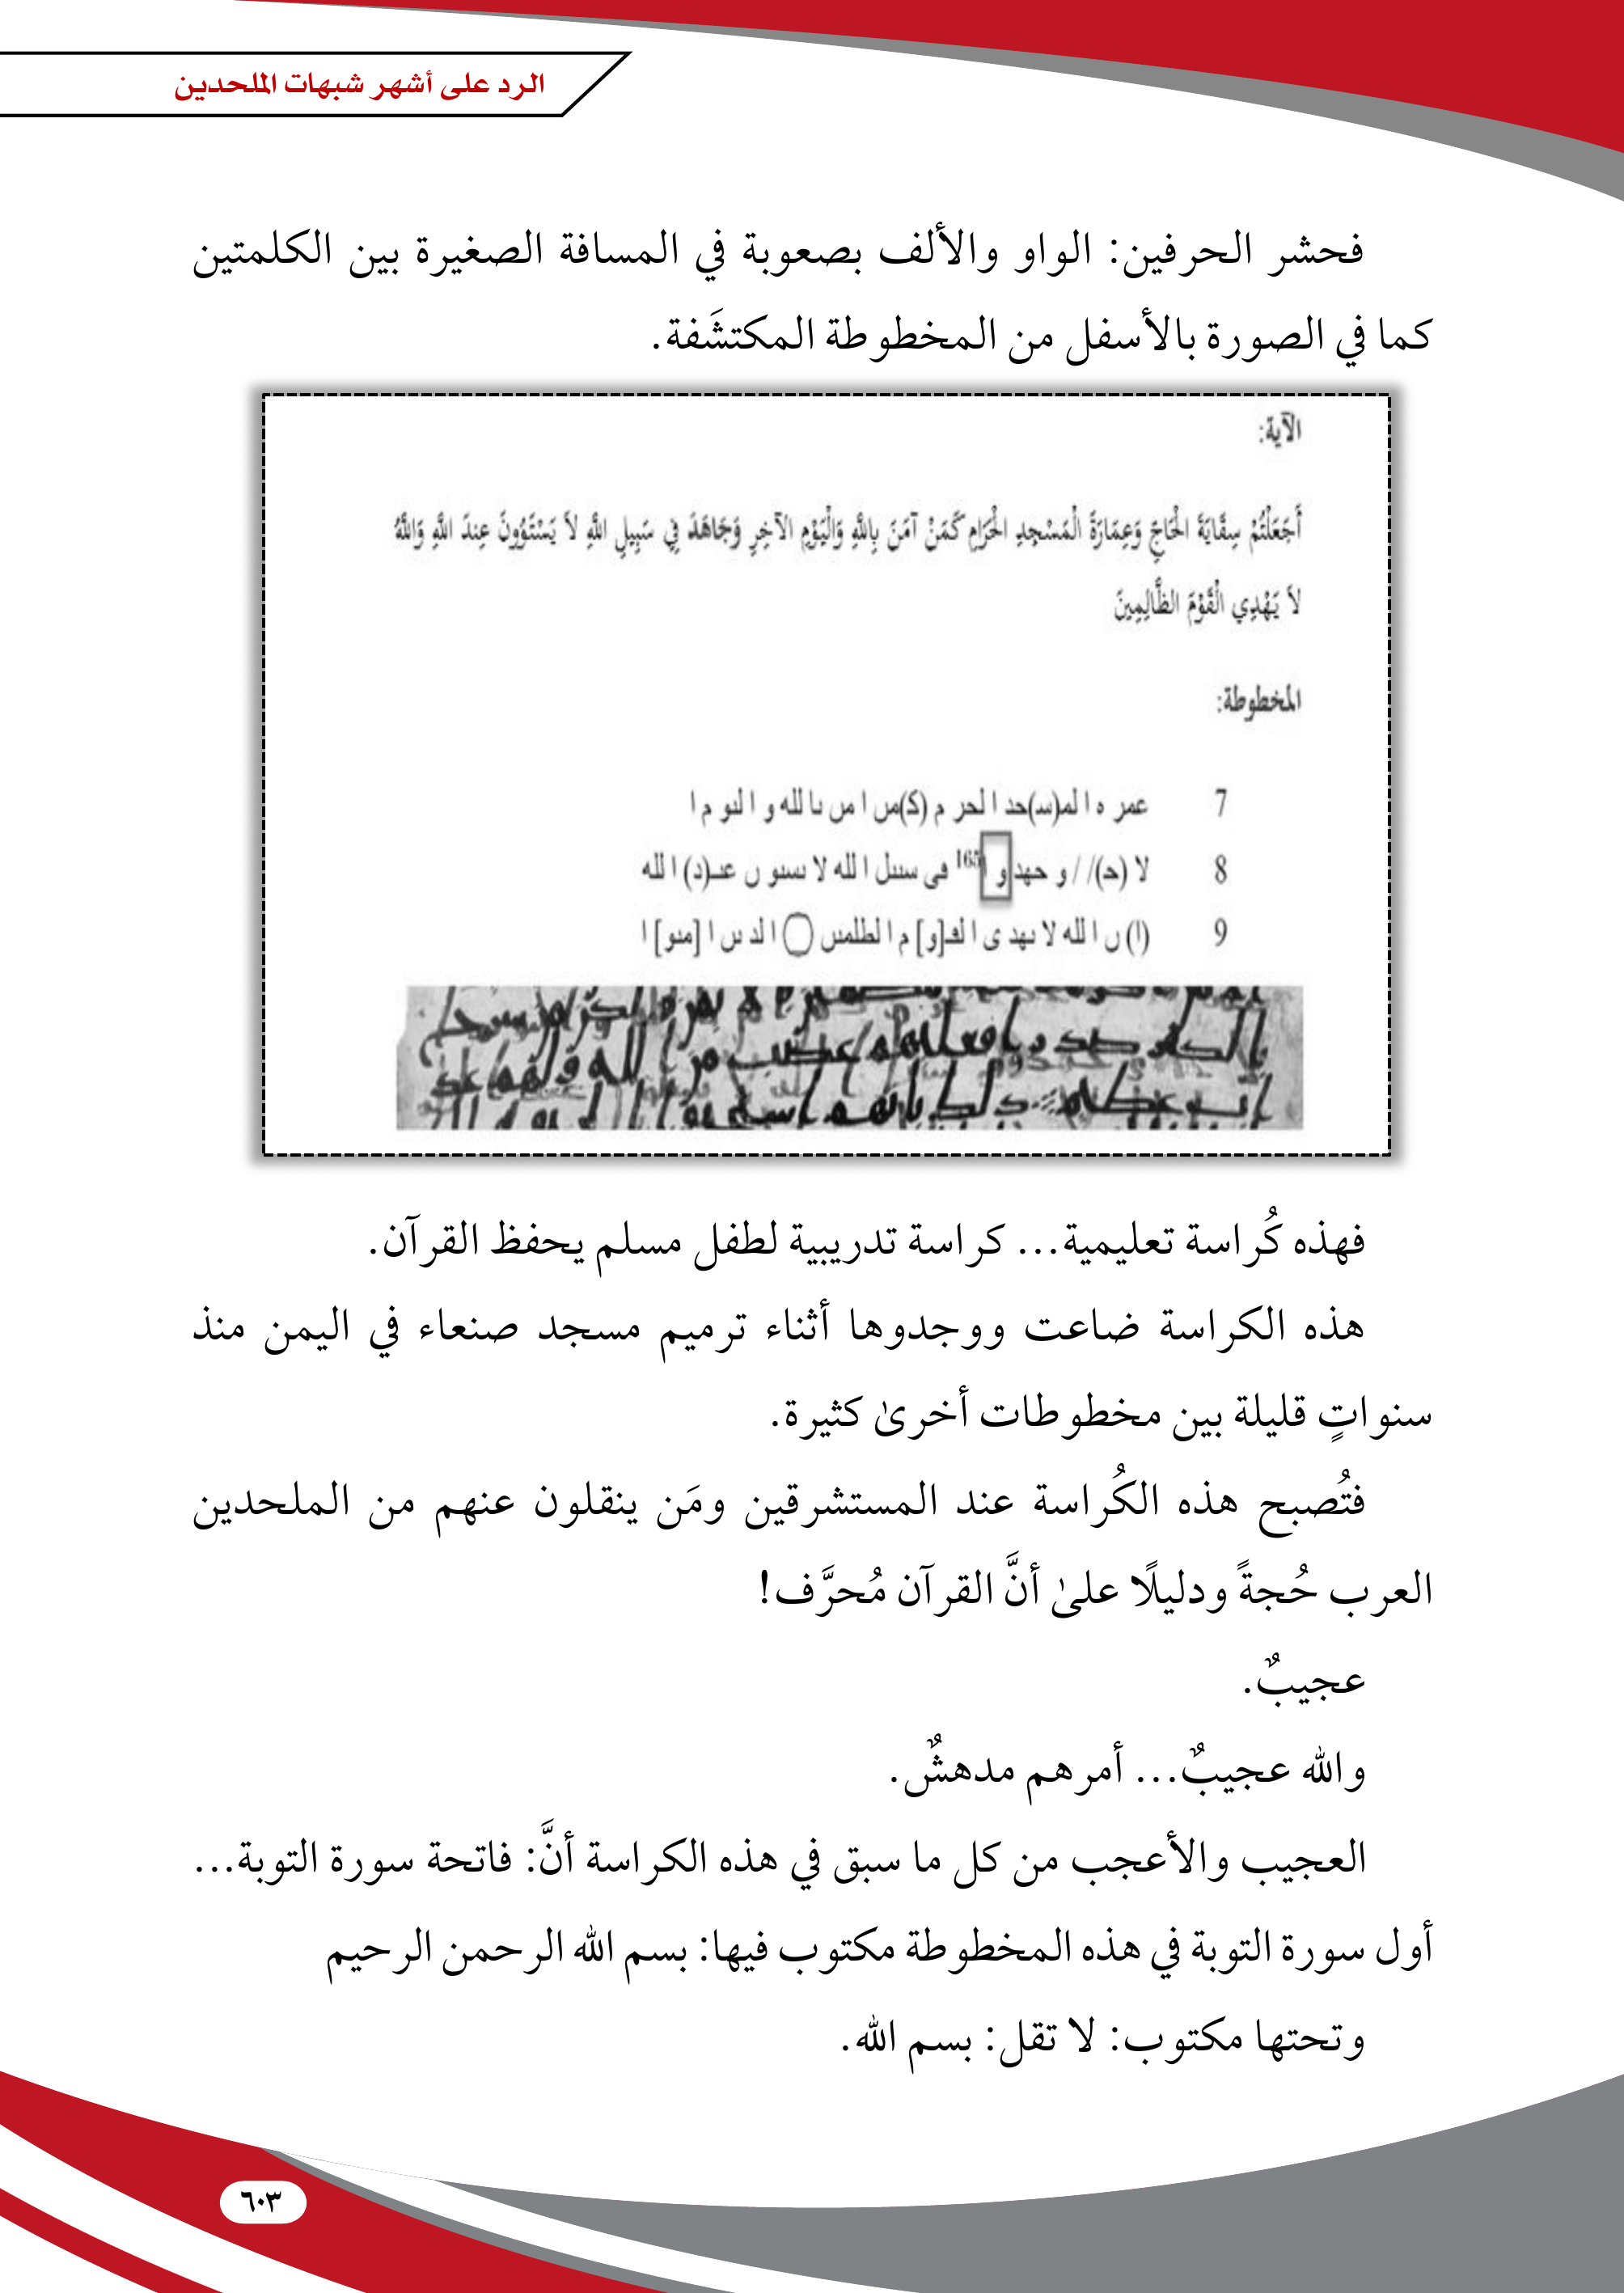 الرد على أشهر شبهات الملحدين
فحشر الحرفين: الواو والألف بصعوبة في المسافة الصغيرة بين الكلمتين
كما في الصورة بالأسفل من المخطوطة المكتشَفة.
الآية:
أَجَعَلْتُمْ سِقَايَةَ الْحَاجِّ وَعِمَارَةَ الْمَسْجِدِ الْحَرَامِ كَمَنْ آمَنَ بِاللَّهِ وَالْيَوْمِ الآخِرِ وَجَاهَدَ فِي سَبِيلِ اللَّهِ لاَ يَسْتَوُونَ عِندَ اللَّهِ وَاللَّهُ
لاَ يَهْدِي الْقَوْمَ الظَّالِمِينَ
المخطوطة:
7 عمر ه ا لمـ(سـ)حد ا لحر م (كـ)مں ا مں ٮا لله و ا لٮو م ا
8 لا (حـ)/ / و حهد و ا 165 فى سٮٮل ا لله لا ٮسٮو ں عٮـ(د) ا لله
9 (ا) ں ا لله لا ٮهد ى ا لفـ[و] م ا لطلمٮں ◯ ا لد ٮں ا [مٮو] ا
فهذه كُراسة تعليمية... كراسة تدريبية لطفل مسلم يحفظ القرآن.
هذه الكراسة ضاعت ووجدوها أثناء ترميم مسجد صنعاء في اليمن منذ
سنواتٍ قليلة بين مخطوطات أخرىٰ كثيرة.
فتُصبح هذه الكُراسة عند المستشرقين ومَن ينقلون عنهم من الملحدين
العرب حُجةً ودليلًا علىٰ أنَّ القرآن مُحرَّف!
عجيبٌ.
والله عجيبٌ... أمرهم مدهشٌ.
العجيب والأعجب من كل ما سبق في هذه الكراسة أنَّ: فاتحة سورة التوبة...
أول سورة التوبة في هذه المخطوطة مكتوب فيها: بسم الله الرحمن الرحيم
وتحتها مكتوب: لا تقل: بسم الله.
٦٠٣